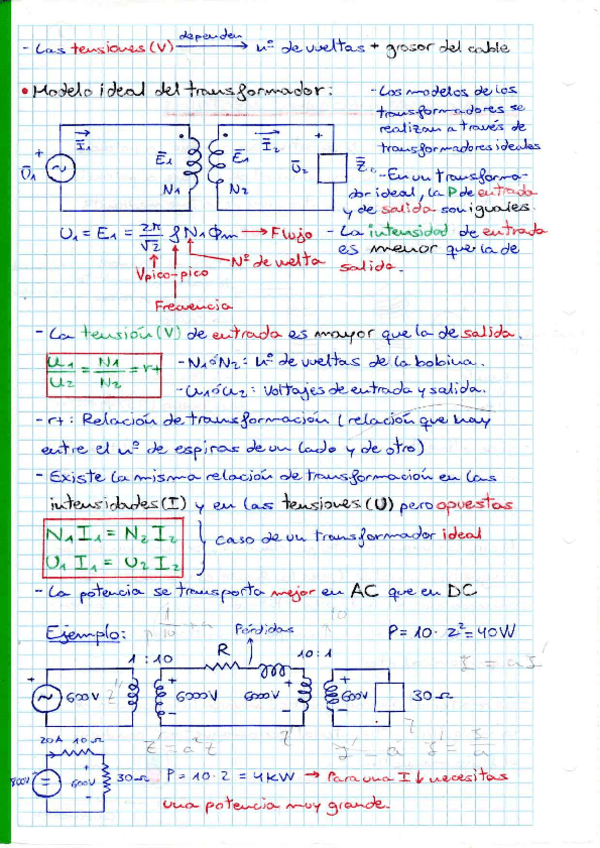 - Las tensiones (V) dependen → nº de vueltas + grosor del cable
• Modelo ideal del transformador:
- Los modelos de los
transformadores se
realizan a través de
transformadores ideales
- En un transforma-
dor ideal, la P de entrada
y de salida son iguales.
- La intensidad de entrada
es menor que la de
salida.
+ Ū1 Ī1 Ē1 N1 Ē1 N2 Ī2 + Ū2 Z̄2
U1 = E1 = 2π/√2 f N1 Φm → Flujo
Nº de vuelta
Vpico-pico
Frecuencia
- La tensión (V) de entrada es mayor que la de salida.
U1/U2 = N1/N2 = rt
- N1 ó N2: nº de vueltas de la bobina.
- U1 ó U2: Voltajes de entrada y salida.
- rt: Relación de transformación (relación que hay
entre el nº de espiras de un lado y de otro)
- Existe la misma relación de transformación en las
intensidades (I) y en las tensiones (U) pero opuestas
N1 I1 = N2 I2
U1 I1 = U2 I2
caso de un transformador ideal
- La potencia se transporta mejor en AC que en DC
Ejemplo:
Pérdidas
P = 10 · 2² = 40W
1 : 10 R 10 : 1
+ 600V + 6000V - + 6000V - + 600V - 30Ω
20A 10Ω
800V + 600V - 30Ω
P = 10 · 2 = 4KW → Para una I ↓ necesitas
una potencia muy grande.